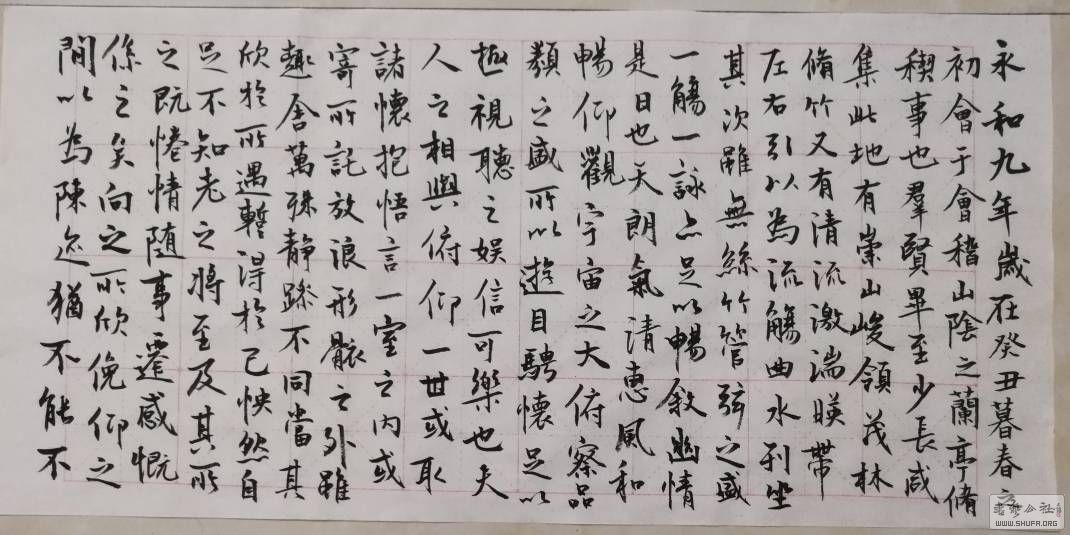 永和九年歲在癸丑暮春之
初會于會稽山陰之蘭亭脩
稧事也羣賢畢至少長咸
集此地有崇山峻領茂林
脩竹又有清流激湍暎帶
左右引以為流觴曲水列坐
其次雖無絲竹管弦之盛
一觴一詠亦足以暢敘幽情
是日也天朗氣清惠風和
暢仰觀宇宙之大俯察品
類之盛所以遊目騁懷足以
極視聽之娛信可樂也夫
人之相與俯仰一世或取
諸懷抱悟言一室之內或
寄所託放浪形骸之外雖
趣舍萬殊靜躁不同當其
欣於所遇蹔得於己怏然自
足不知老之將至及其所
之既惓情隨事遷感慨
係之矣向之所欣俛仰之
間以為陳迹猶不能不
書法公社
WWW.SHUFA.ORG